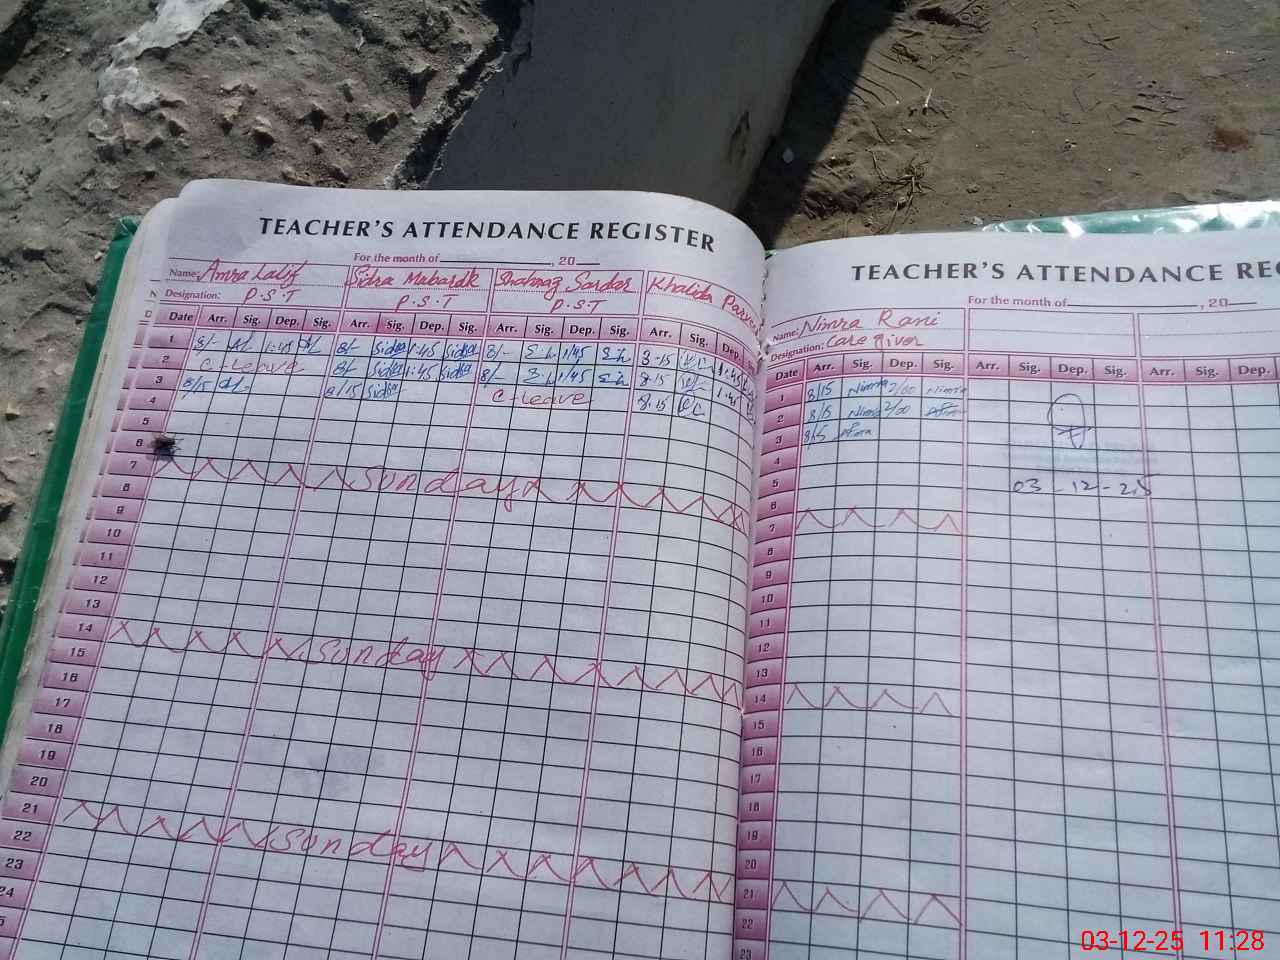 TEACHER'S ATTENDANCE REGISTER
For the month of , 20
Name: Amra Latif Sidra Mubarak Shahnaz Sardar Khalida Parveen
Designation: P.S.T P.S.T P.S.T
Date Arr. Sig. Dep. Sig. Arr. Sig. Dep. Sig. Arr. Sig. Dep. Sig. Arr. Sig. Dep.
1 8/- 1:45 8/- Sidra 1:45 Sidra 8/- 1/45 8-15 1:45
2 C-Leave 8/- Sidra 1:45 Sidra 8/- 1/45 8-15 1:45
3 8/15 8/15 Sidra C-Leave 8-15
4
5
6
7 Sunday
8
9
10
11
12
13
14 Sunday
15
16
17
18
19
20
21 Sunday
22
23
24
TEACHER'S ATTENDANCE REG
For the month of , 20
Name: Nimra Rani
Designation: Care Giver
Date Arr. Sig. Dep. Sig. Arr. Sig. Dep. Sig. Arr. Sig. Dep.
1 8/15 Nimra 2/00 Nimra
2 8/15 Nimra 2/00
3 8/15
4
5 03-12-25
6
7
8
9
10
11
12
13
14
15
16
17
18
19
20
21
22
23
03-12-25 11:28